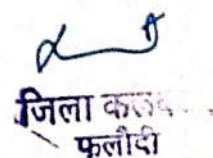 जिला कलक
फलौदी